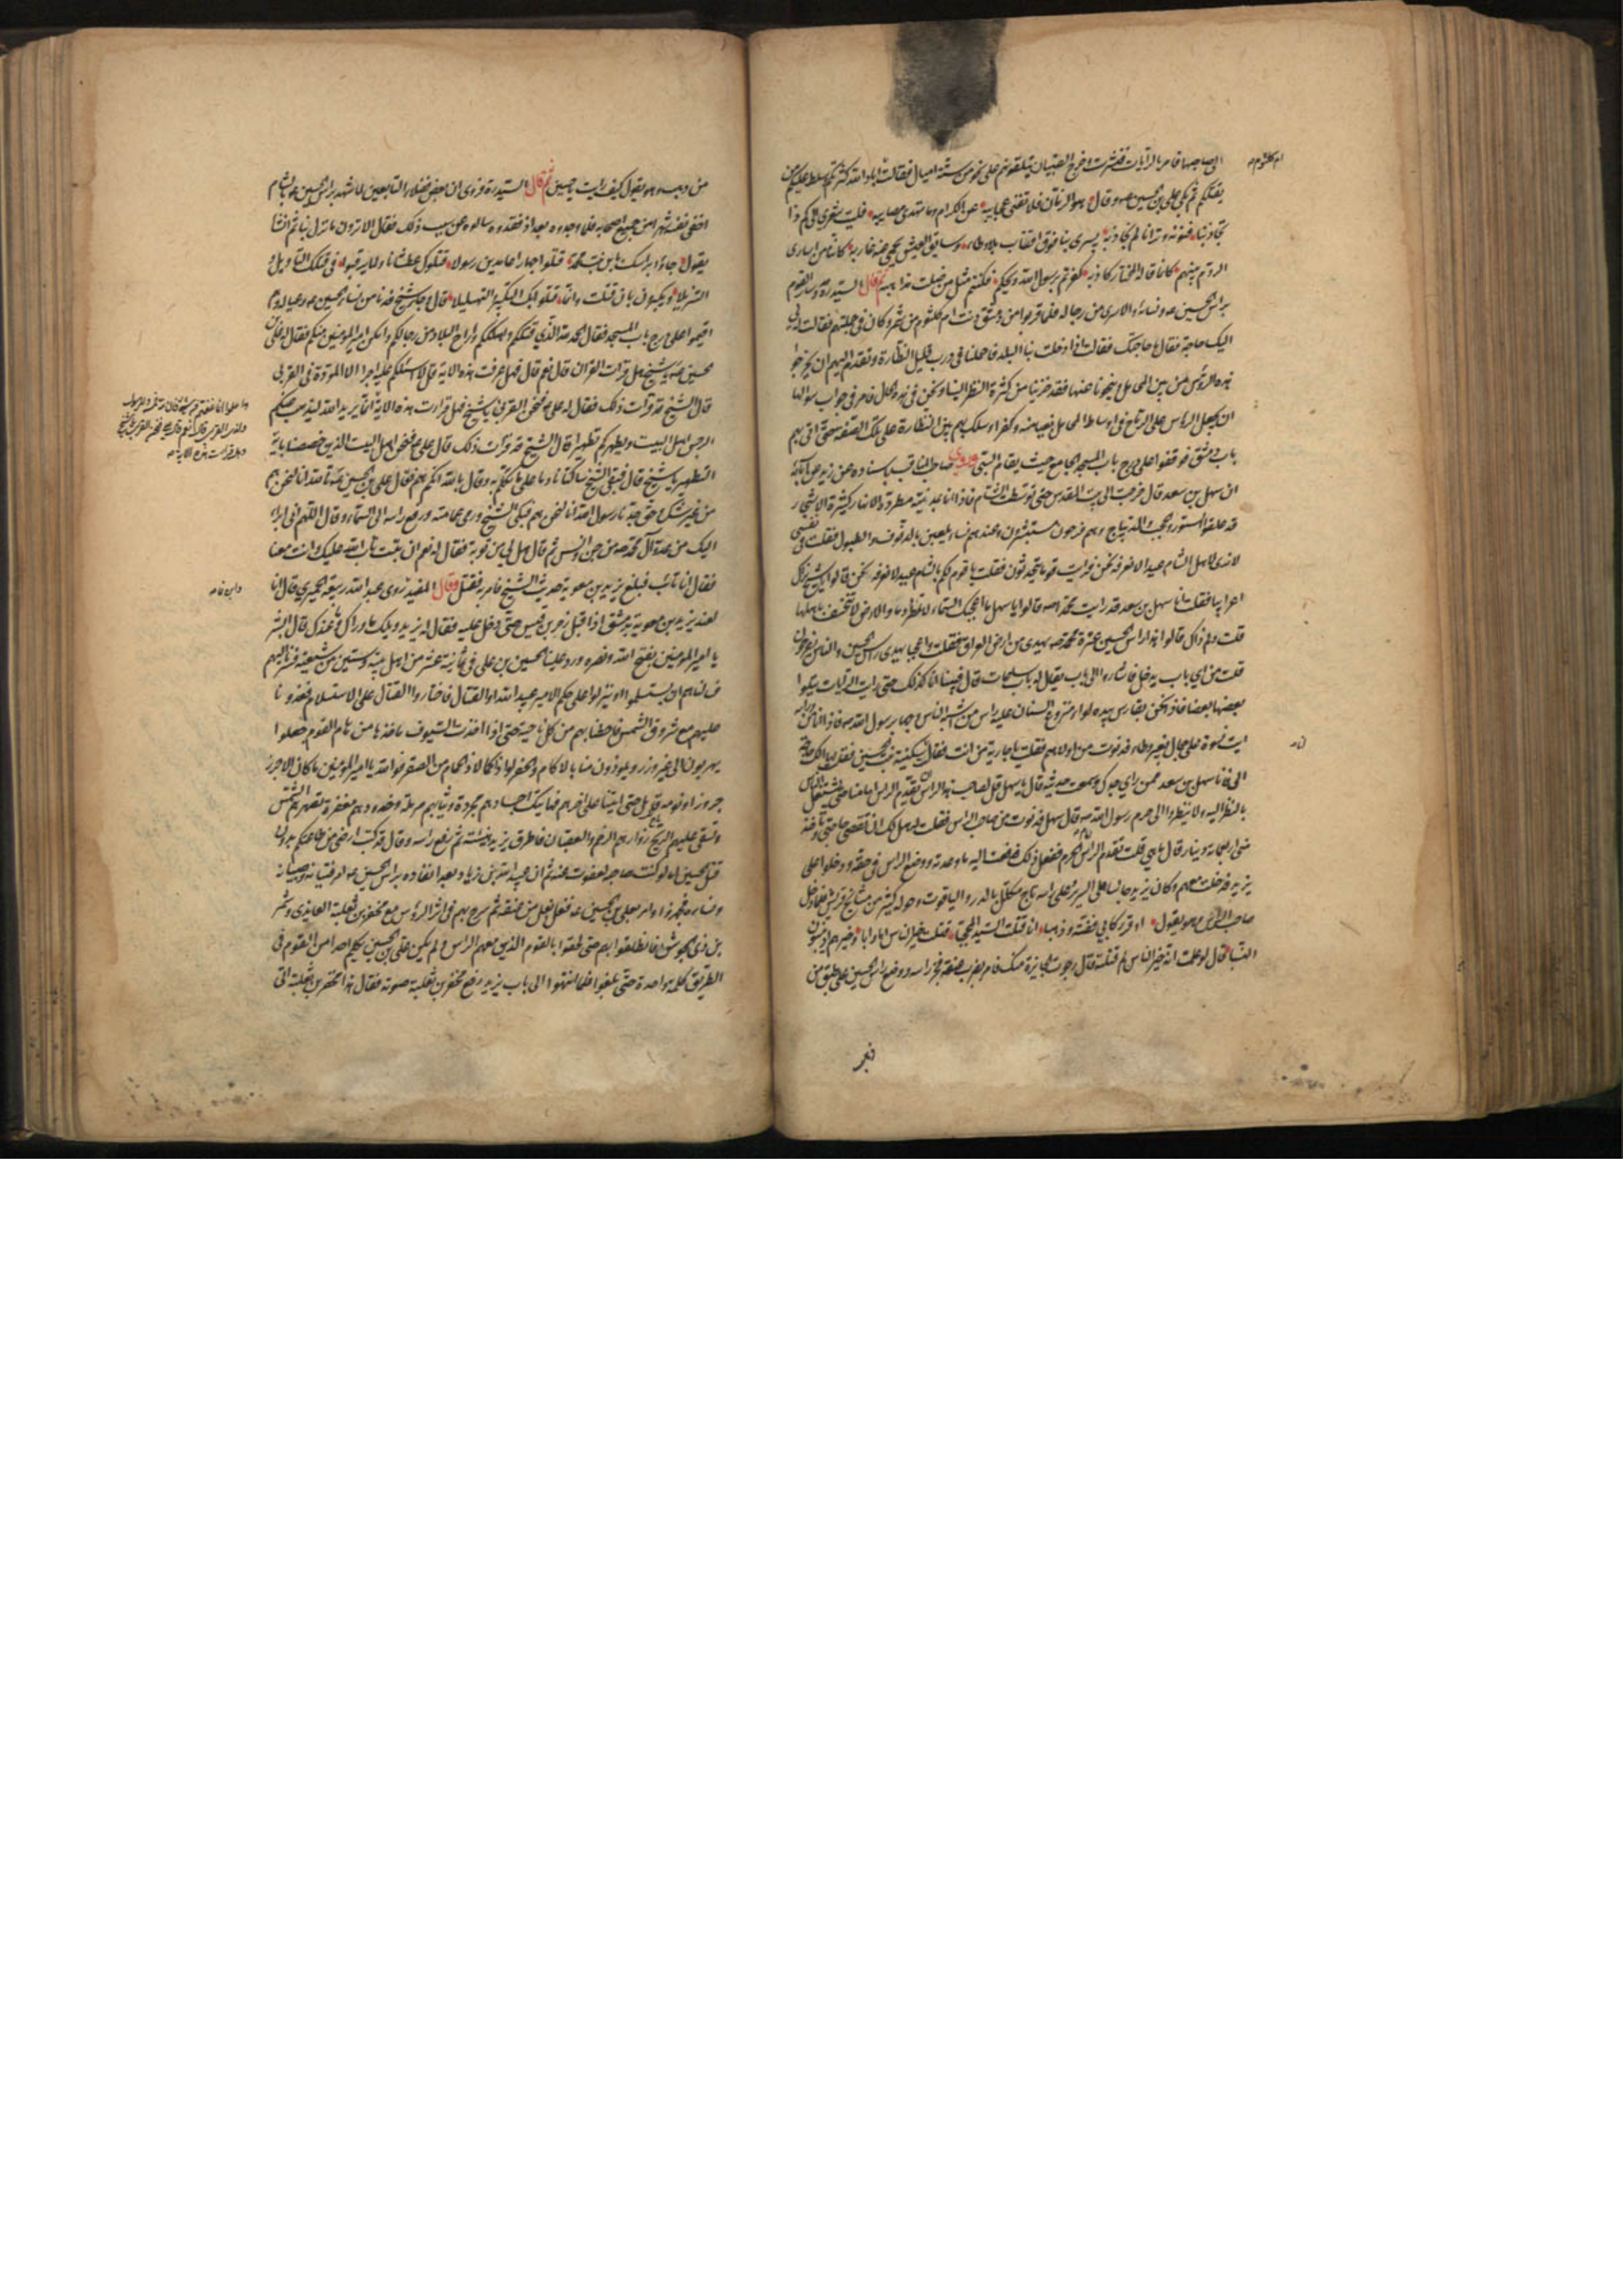 ام كلثوم
الى صاحبها فامر بالرايات فنشرت وخرج الصبيان يتلقونهم على نحو من ستة اميال فقالت اباد الله كثرتكم وسلط عليكم من
يقتلكم ثم بكى علي بن الحسين عه وقال هو الزمان فلا تفنى عجايبه عن الكرام وما تهدى مصايبه فليت شعري الى كم ذا
تجاذبنا فنونه وترانا لم نجاذبه يسرى بنا فوق اقتاب بلا وطاء وسايق العيس يحمى عنه غاربه كاننا من اسارى
الروم بينهم كانما قاله المختار كاذبه كفرتم برسول الله ويحكم فكنتم مثل من ضلت مذاهبه ثم قال السيد ره وسار القوم
براس الحسين عه ونسائه والاسرى من رجاله فلما قربوا من دمشق دنت ام كلثوم من شمر وكان في جملتهم فقالت له لي
اليك حاجة فقال ما حاجتك فقالت اذا دخلت بنا البلد فاحملنا في درب قليل النظارة وتقدم اليهم ان يخرجوا
هذه الرؤس من بين المحامل وينحونا عنها فقد خزينا من كثرة النظر الينا ونحن في هذه الحال فامر في جواب سؤالها
ان يجعل الراس على الرماح في اوساط المحامل بغيا منه وكفرا وسلك بهم بين النظارة على تلك الصفة حتى اتى بهم
باب دمشق فوقفوا على درج باب المسجد الجامع حيث يقام السبي وروى صاحب المناقب باسناده عن زيد عن ابائه
ان سهل بن سعد قال خرجت الى بيت المقدس حتى توسطت الشام فاذا انا بمدينة مطردة الانهار كثيرة الاشجار
قد علقوا الستور والحجب والديباج وهم فرحون مستبشرون وعندهم نساء يلعبن بالدفوف والطبول فقلت في نفسي
لا نرى لاهل الشام عيدا لا نعرفه نحن فرايت قوما يتحدثون فقلت يا قوم لكم بالشام عيد لا نعرفه نحن قالوا يا شيخ نراك
اعرابيا فقلت انا سهل بن سعد قد رايت محمدا ص قالوا يا سهل ما اعجبك السماء لا تمطر دما والارض لا تنخسف باهلها
قلت ولم ذاك قالوا هذا راس الحسين عترة محمد ص يهدى من ارض العراق فقلت واعجبا يهدى راس الحسين والناس يفرحون
قلت من اي باب يدخل فاشاروا الى باب يقال له باب ساعات قال فبينا انا كذلك حتى رايت الرايات يتلوا
بعضها بعضا فاذا نحن بفارس بيده لواء منزوع السنان عليه راس من اشبه الناس وجها برسول الله ص فاذا انا من ورائه
رايت نسوة على جمال بغير وطاء فدنوت من اولاهم فقلت يا جارية من انت فقالت سكينة بنت الحسين فقلت لها الك حاجة
الي فانا سهل بن سعد ممن راى جدك وسمعت حديثه قال يا سهل قل لصاحب هذا الراس ان يقدم الراس امامنا حتى يشتغل الناس
بالنظر اليه ولا ينظروا الى حرم رسول الله ص قال سهل فدنوت من صاحب الراس فقلت له هل لك ان تقضي حاجتي وتاخذ
مني اربعمائة دينار قال ما هي قلت تقدم الراس امام الحرم ففعل ذلك فدفعت اليه ما وعدته ووضع الراس في حقة ودخلوا على
يزيد فدخلت معهم وكان يزيد جالسا على السرير وعلى راسه تاج مكلل بالدر والياقوت وحوله كثير من مشايخ قريش فلما دخل
صاحب الراس وهو يقول اوقر ركابي فضة وذهبا انا قتلت السيد المحجبا قتلت خير الناس اما وابا وخيرهم اذ ينسبون
النسبا قال لو علمت انه خير الناس لم قتلته قال رجوت الجايزة منك فامر بضرب عنقه فجز راسه ووضع راس الحسين على طبق من
ذهب
من ذهب وهو يقول كيف رايت يا حسين ثم قال السيد ره وروى ان بعض فضلاء التابعين لما شهد براس الحسين عه بالشام
اخفى نفسه شهرا من جميع اصحابه فلما وجدوه بعد اذ فقدوه سالوه عن سبب ذلك فقال الا ترون ما نزل بنا ثم انشا
يقول جاؤا براسك يا ابن بنت محمد قتلوا جهارا عامدين رسولا قتلوك عطشانا ولما يرقبوا في قتلك التاويل و
التنزيلا ويكبرون بان قتلت وانما قتلوا بك التكبير والتهليلا قال وجاء شيخ فدنا من نساء الحسين عه وعياله وهم
اقيموا على درج باب المسجد فقال الحمد لله الذي قتلكم واهلككم واراح البلاد من رجالكم وامكن امير المؤمنين منكم فقال له علي بن
الحسين عه يا شيخ هل قرات القران قال نعم قال فهل عرفت هذه الاية قل لا اسئلكم عليه اجرا الا المودة في القربى
قال الشيخ قد قرات ذلك فقال له علي فنحن القربى يا شيخ فهل قرات هذه الاية انما يريد الله ليذهب عنكم
الرجس اهل البيت ويطهركم تطهيرا قال الشيخ قد قرات ذلك قال علي فنحن اهل البيت الذين خصصنا باية
التطهير يا شيخ قال فبقى الشيخ ساكتا نادما على ما تكلم به وقال بالله انكم هم فقال علي بن الحسين عه تالله انا لنحن هم
من غير شك وحق جدنا رسول الله انا لنحن هم فبكى الشيخ ورمى عمامته ورفع راسه الى السماء وقال اللهم اني ابرا
اليك من عدو آل محمد ص من جن وانس ثم قال هل لي من توبة فقال له نعم ان تبت تاب الله عليك وانت معنا
فقال انا تائب فبلغ يزيد بن معوية حديث الشيخ فامر به فقتل وقال المفيد روى عبد الله بن ربيعة الحميري قال انا
لعند يزيد بن معوية بدمشق اذ اقبل زحر بن قيس حتى دخل عليه فقال له يزيد ويلك ما وراك وما عندك قال ابشر
يا امير المؤمنين بفتح الله ونصره ورد علينا الحسين بن علي في ثمانية عشر من اهل بيته وستين من شيعته فسرنا اليهم
فسالناهم ان يستسلموا او ينزلوا على حكم الامير عبيد الله او القتال فاختاروا القتال على الاستسلام فغدونا
عليهم مع شروق الشمس فاحطنا بهم من كل ناحية حتى اذا اخذت السيوف ماخذها من هام القوم جعلوا
يهربون الى غير وزر ويلوذون منا بالاكام والحفر لواذا كما لاذ الحمام من الصقر فوالله يا امير المؤمنين ما كان الا جزر
جزور او نومة قائل حتى اتينا على اخرهم فهاتيك اجسادهم مجردة وثيابهم مرملة وخدودهم معفرة تصهرهم الشمس
وتسفى عليهم الريح زوارهم الرخم والعقبان فاطرق يزيد هنيئة ثم رفع راسه وقال قد كنت ارضى من طاعتكم بدون
قتل الحسين اما لو كنت صاحبه لعفوت عنه ثم ان عبيد الله بن زياد بعد انفاذه براس الحسين عه امر فتيانه وصبيانه
ونساءه فجهزوا وامر بعلي بن الحسين عه فغل بغل من عنقه ثم سرح بهم في اثر الرؤس مع مخفر بن ثعلبة العايذي وشمر
بن ذي الجوشن فانطلقوا بهم حتى لحقوا بالقوم الذين معهم الراس ولم يكن علي بن الحسين يكلم احدا من القوم في
الطريق كلمة واحدة حتى بلغوا فلما انتهوا الى باب يزيد رفع مخفر بن ثعلبة صوته فقال هذا مخفر بن ثعلبة اتى